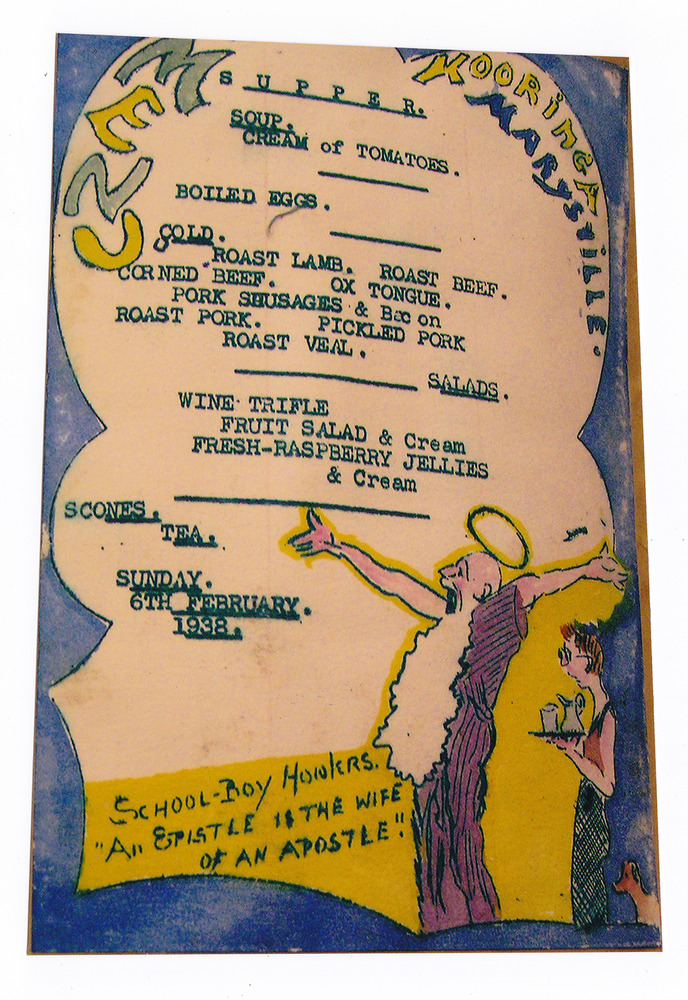 MENU
KOORINGA
MARYSVILLE.
SUPPER.
SOUP.
CREAM of TOMATOES.
BOILED EGGS.
COLD.
ROAST LAMB. ROAST BEEF.
CORNED BEEF. OX TONGUE.
PORK SHUSAGES & Bacon
ROAST PORK. PICKLED PORK
ROAST VEAL.
SALADS.
WINE TRIFLE
FRUIT SALAD & Cream
FRESH-RASPBERRY JELLIES
& Cream
SCONES.
TEA.
SUNDAY.
6TH FEBRUARY.
1938.
SCHOOL-BOY HOWLERS.
"AN EPISTLE IS THE WIFE
OF AN APOSTLE"!